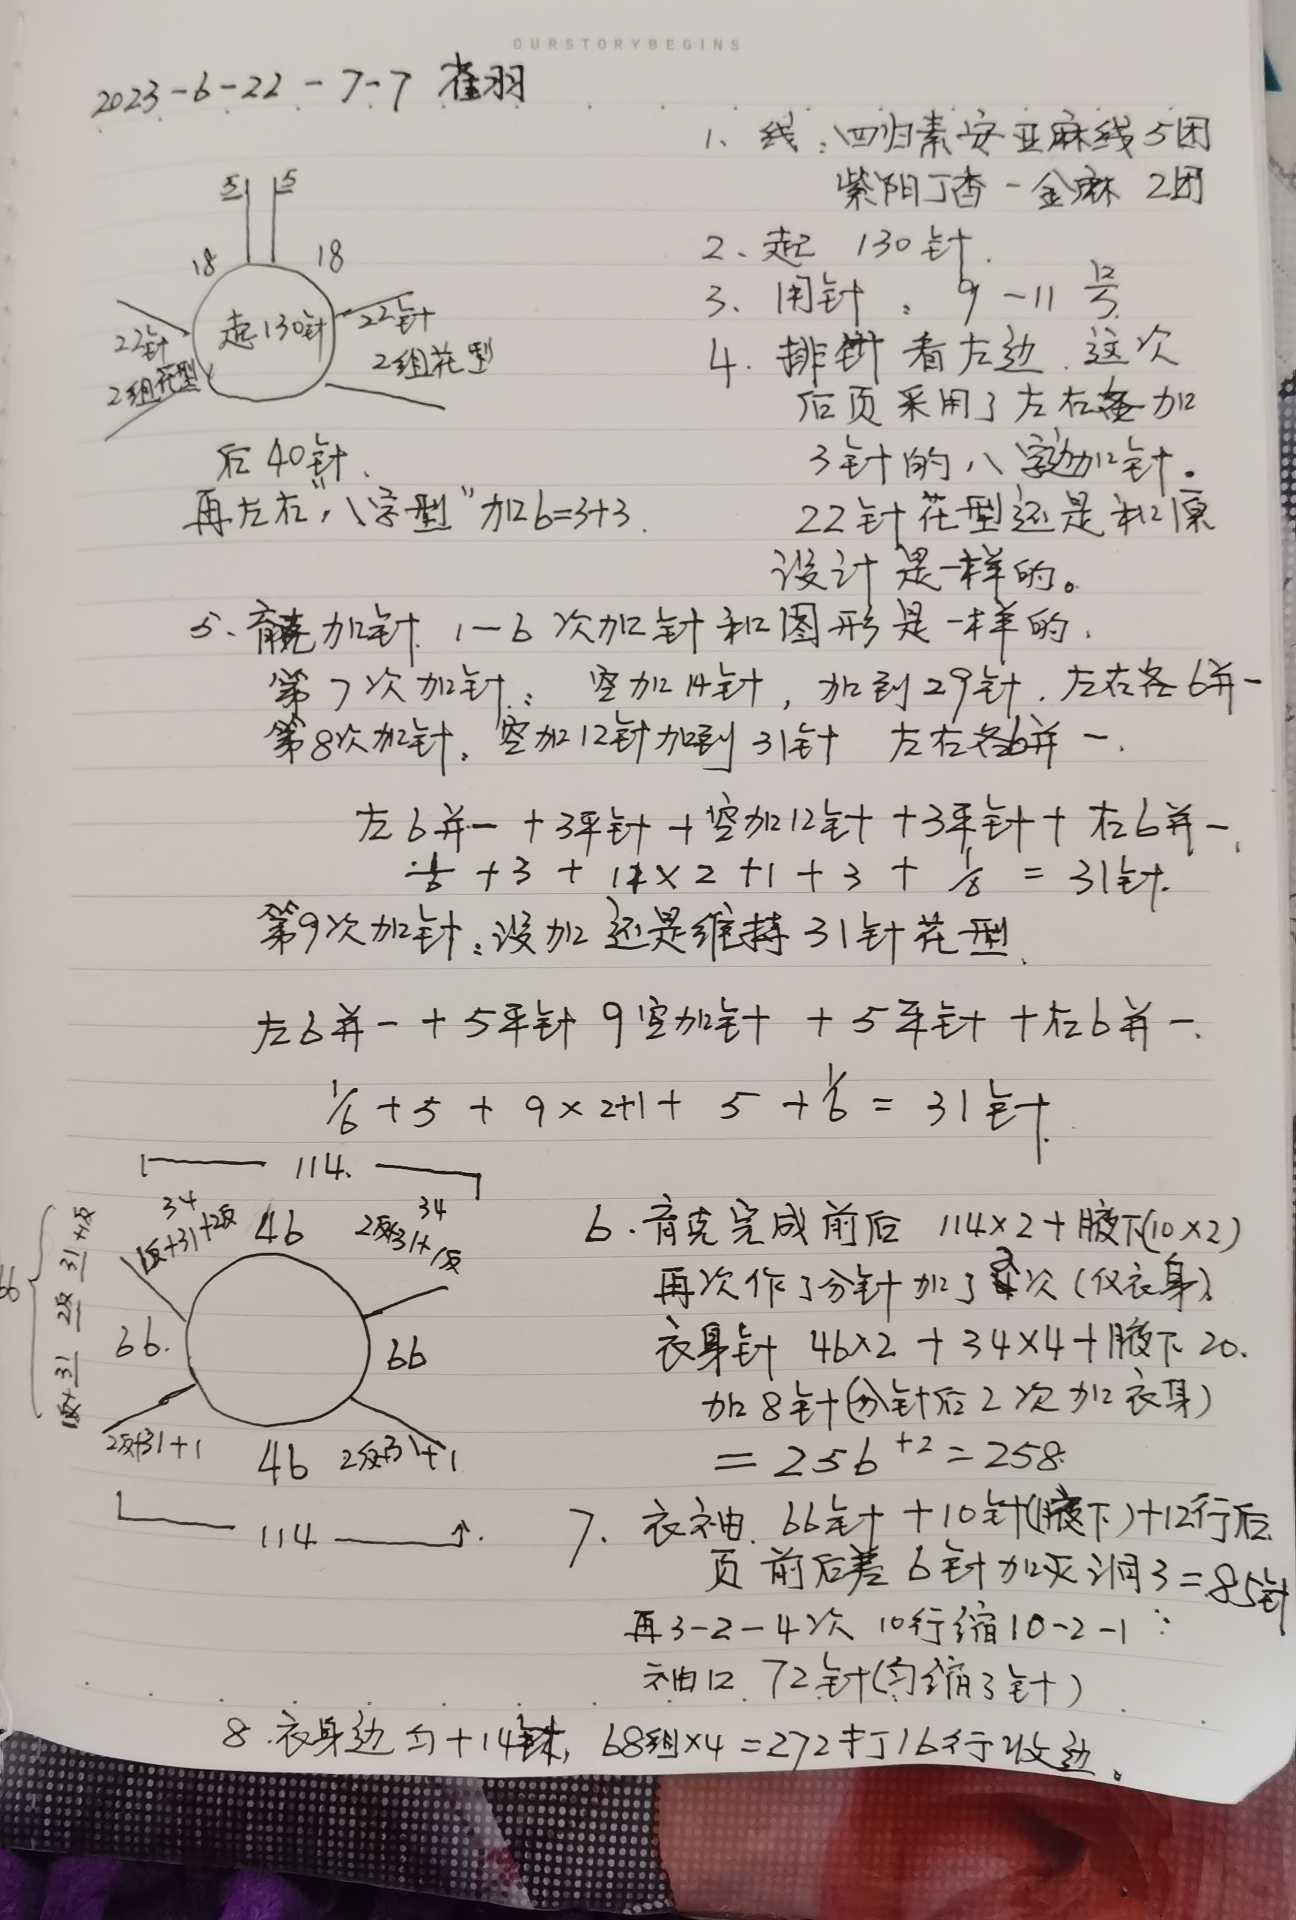 OURSTORYBEGINS
2023-6-22-7-7 雀羽
1、线：四归素安亚麻线5团
紫阳丁香-金麻 2团
2、起 130针.
3、用针：9-11号
12
4.排针看左边.这次
后页采用了左右各加
3针的八字边加针。
22针花型还是和原
设计是一样的。
5 5
18 18
起130针
22针
2组花型
22针
2组花型
后40针.
再左右"八字型"加6=3+3.
5、育克加针.1-6次加针和图形是一样的.
第7次加针：空加14针，加到29针.左右各6并一
第8次加针：空加12针加到31针 左右各6并一.
左6并一+3平针+空加12针+3平针+右6并一.
+3+12×2+1+3+ =31针.
第9次加针：没加还是维持31针花型.
左6并一+5平针9空加针+5平针+右6并一.
1/6+5+9×2+1+5+1/6=31针.
114.
34
1反+31+2反
46
34
2反+31+1反
66
1反+31 2反 31+1反
66.
66
2反+31+1
46
2反+31+1
114
6.育克完成前后 114×2+腋下(10×2)
再次作了分针加了2次(仅衣身)
衣身针 46×2+34×4+腋下20.
加8针(分针后2次加衣身)
=256+2=258.
7.衣袖.66针+10针(腋下)+12行后
页前后差6针加灭洞3=85针
再3-2-4次 10行缩10-2-1∵
袖口.72针(匀缩3针)
8.衣身边匀+14针，68组×4=272打16行收边。